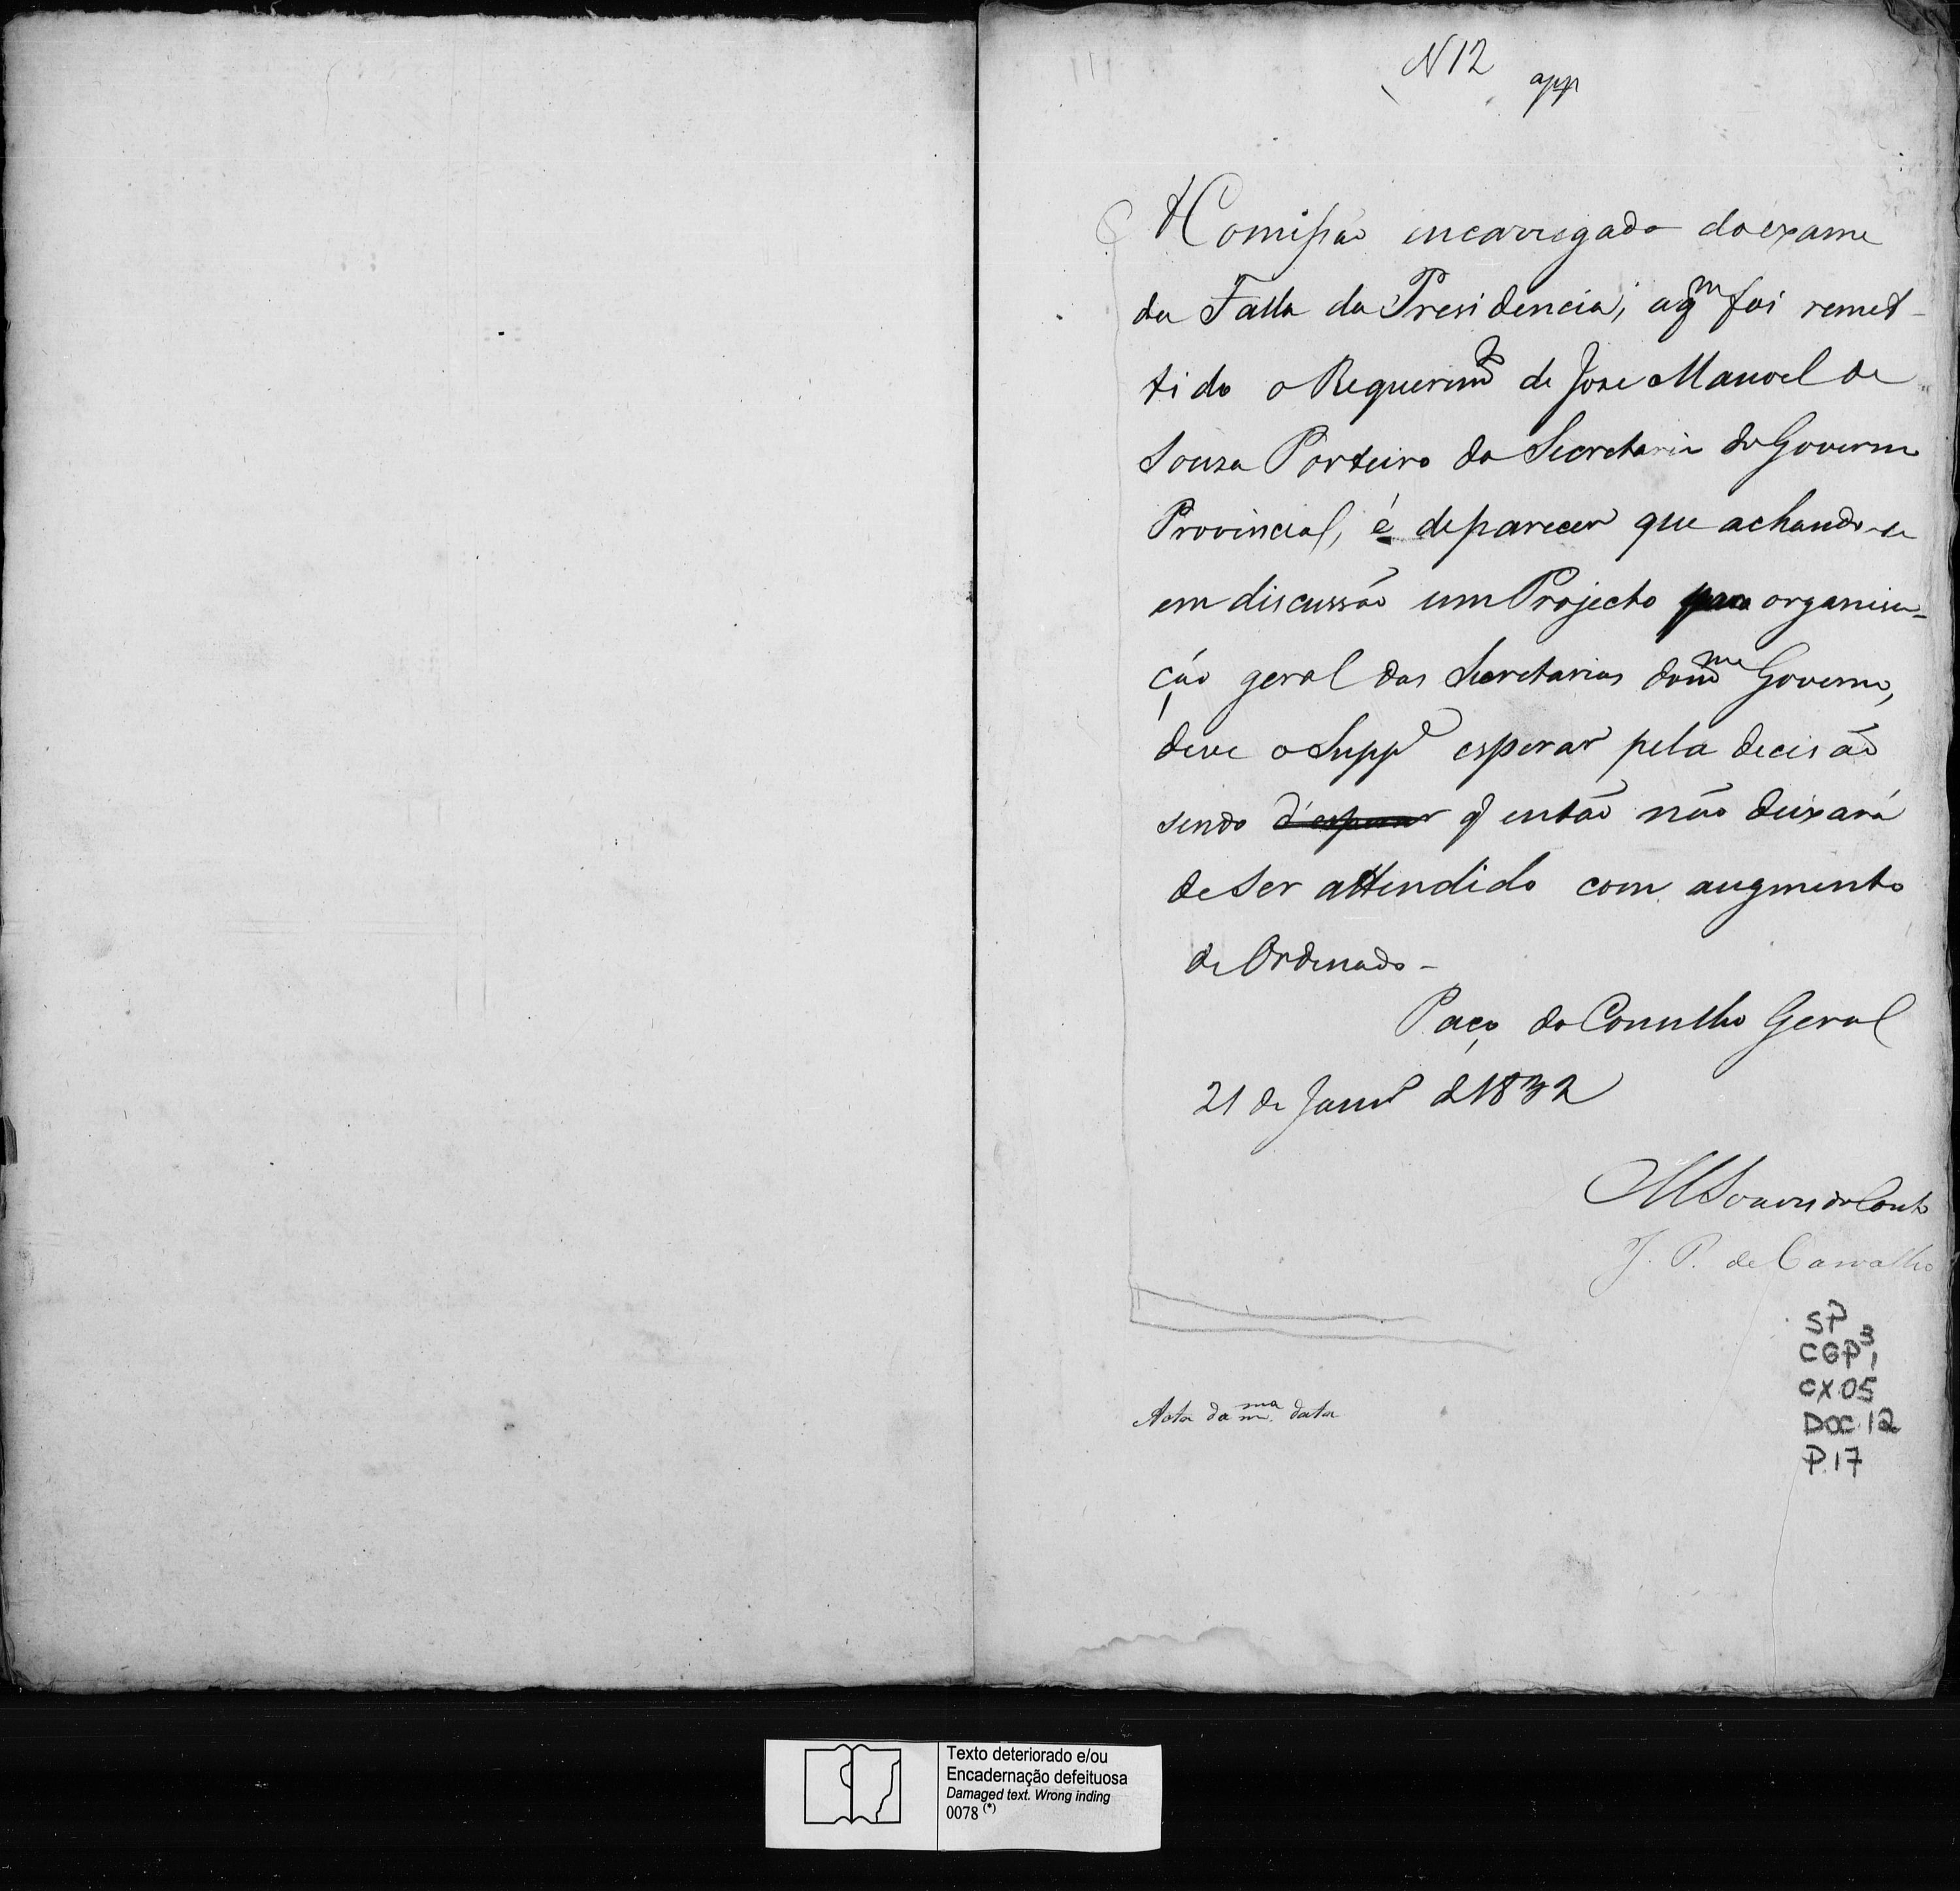 N 12 app
A Comissão incarregada do exame
da Falla da Presidencia, a qm foi remet-
tido o Requerimto de Joze Manoel de
Souza Porteiro da Secretaria do Governo
Provincial, é de parecer que achando-se
em discussão um Projecto para organisa-
ção geral das Secretarias do mmo Governo,
deve o Suppe esperar pela decisão
sendo d'esperar q então não deixará
de ser attendido com augmento
de Ordenado -
Paço do Conselho Geral
21 de Janro d 1832
M Soares do Couto
J. P. de Carvalho
SP
CGP 3,1
CX 05
DOC. 12
P. 17
Acta da mma data
Texto deteriorado e/ou
Encadernação defeituosa
Damaged text. Wrong inding
0078 (*)